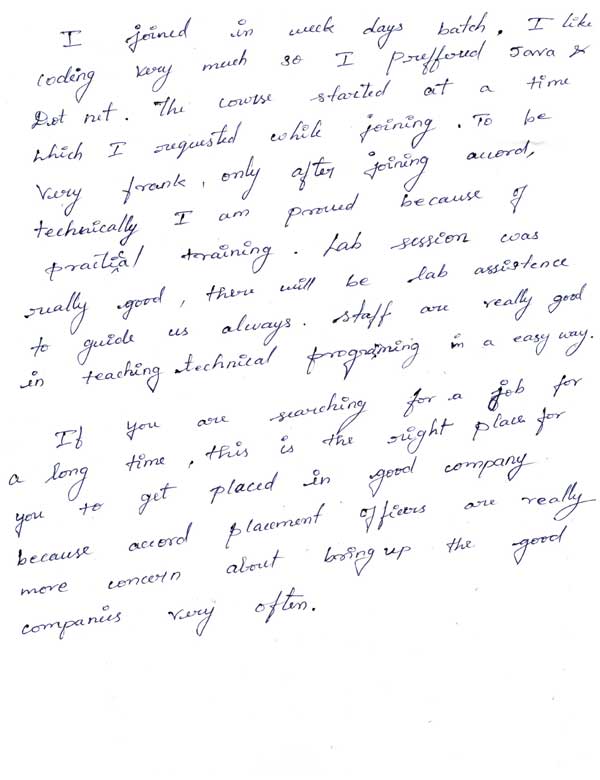 I joined in week days batch. I like
coding very much so I preffored Java &
Dot net. The course started at a time
which I requested while joining. To be
very frank, only after joining accord,
technically I am proud because of
practical training. Lab session was
really good, there will be lab assistence
to guide us always. Staff are really good
in teaching technical programing in a easy way.
If you are searching for a job for
a long time, this is the right place for
you to get placed in good company
because accord placement officers are really
more concern about bring up the good
companies very often.